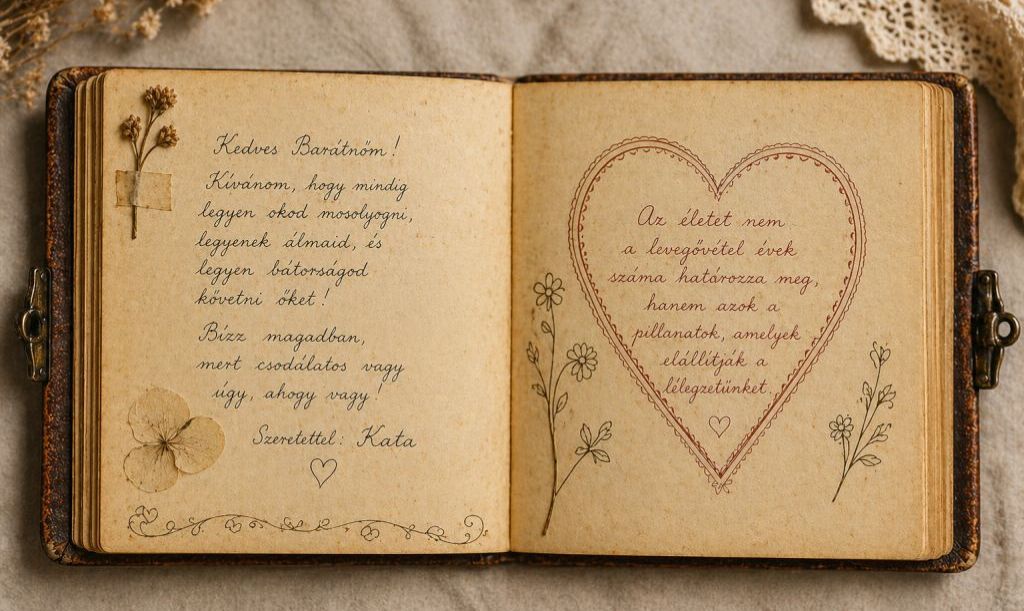 Kedves Barátnőm!
Kívánom, hogy mindig
legyen okod mosolyogni,
legyenek álmaid, és
legyen bátorságod
követni őket!
Bízz magadban,
mert csodálatos vagy
úgy, ahogy vagy!
Szeretettel: Kata
Az életet nem
a levegővétel évek
száma határozza meg,
hanem azok a
pillanatok, amelyek
elállítják a
lélegzetünket.